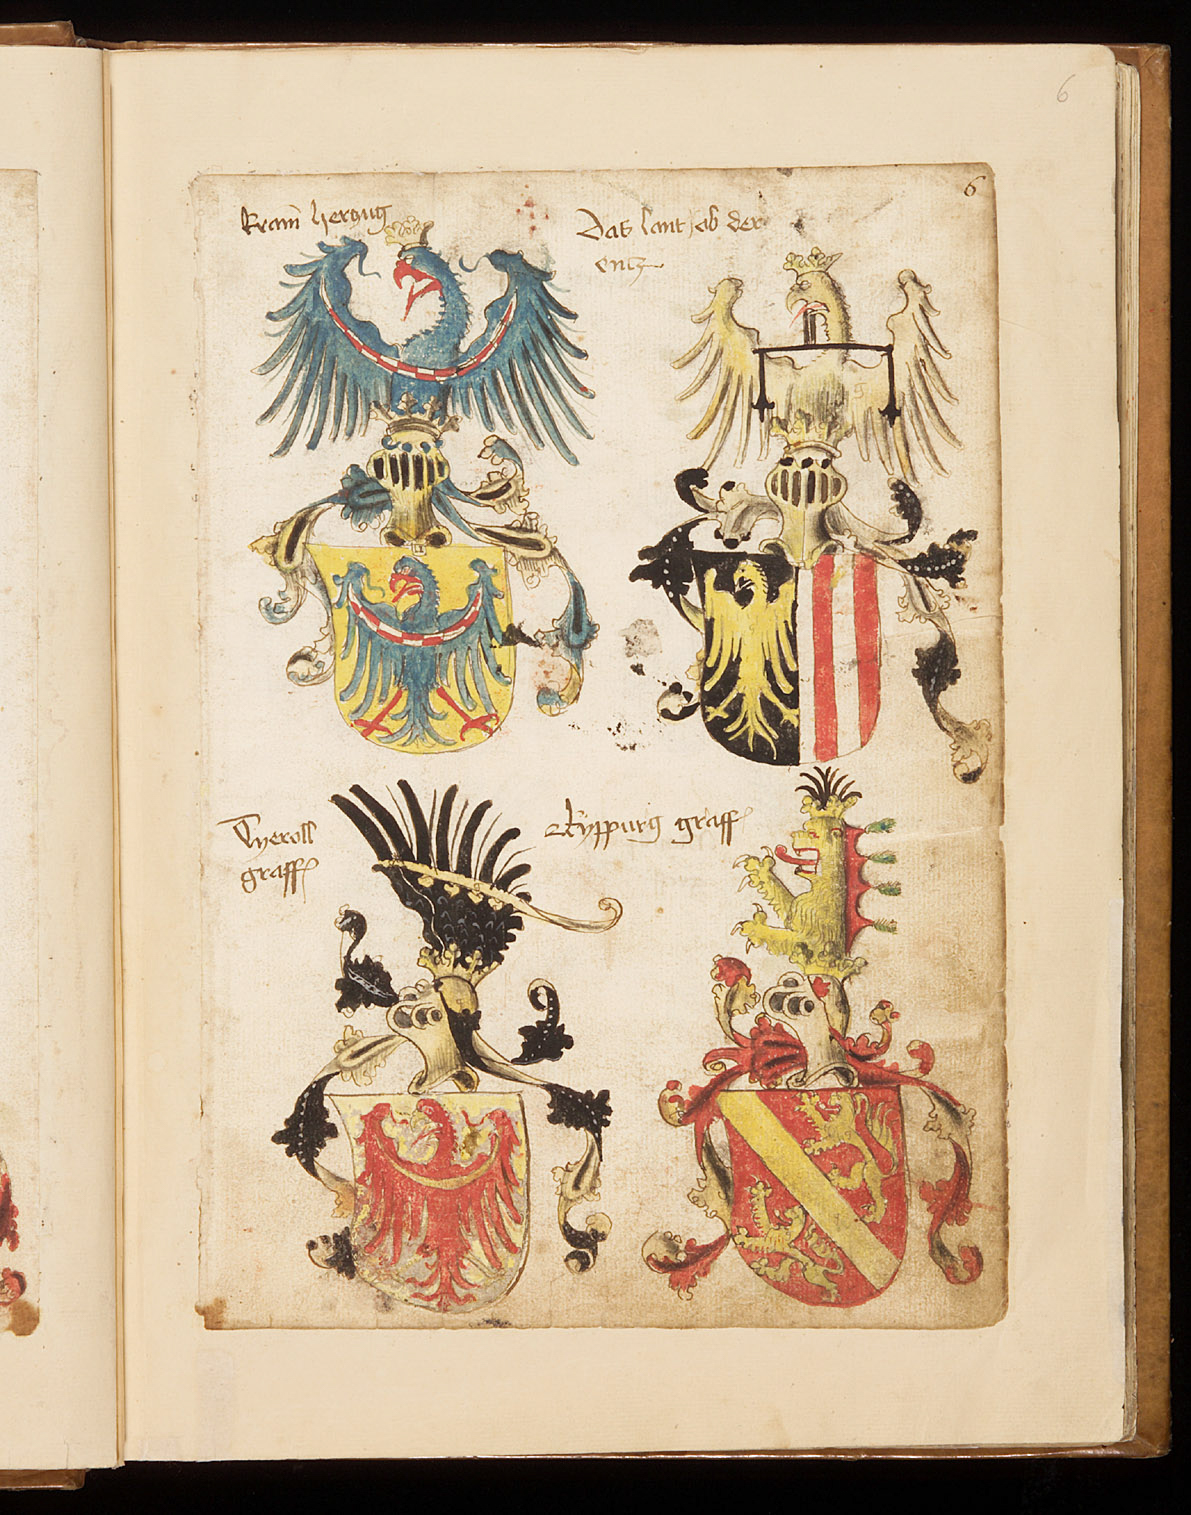 6
6
Kram̄ herczug
Das lant ob der
entz
Tyeroll
graff
Kyppurg graff